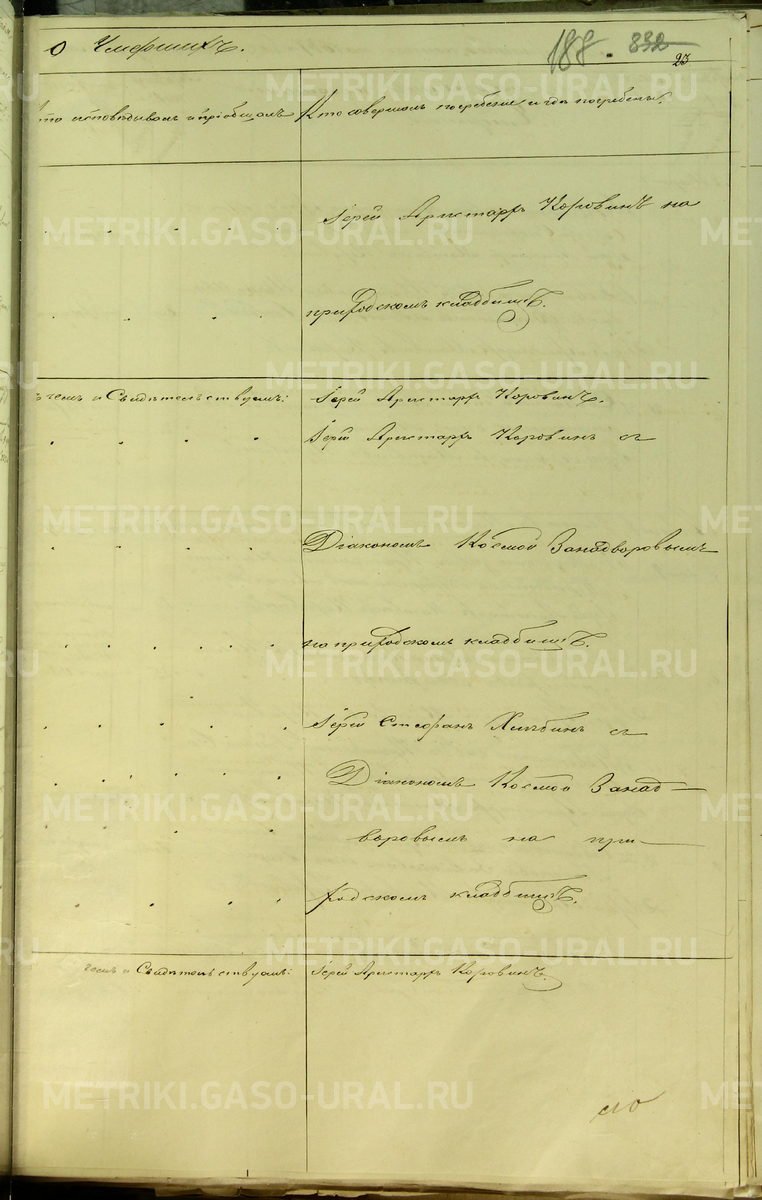 О Умершихъ.
188. 832
23
то исповѣдывалъ и пріобщалъ
Кто совершалъ погребеніе и гдѣ погребены.
Іерей Аристархъ Коровинъ на
приходскомъ кладбищѣ.
чемъ и Свидѣтельствуемъ:
Іерей Аристархъ Коровинъ.
Іерей Аристархъ Коровинъ съ
Діакономъ Космой Занадворовымъ
на приходскомъ кладбищѣ.
Іерей Стефанъ Хлѣбинъ съ
Діакономъ Космой Занад-
воровымъ на при-
ходскомъ кладбищѣ.
чемъ и Свидѣтельствуемъ:
Іерей Аристархъ Коровинъ.
METRIKI.GASO-URAL.RU